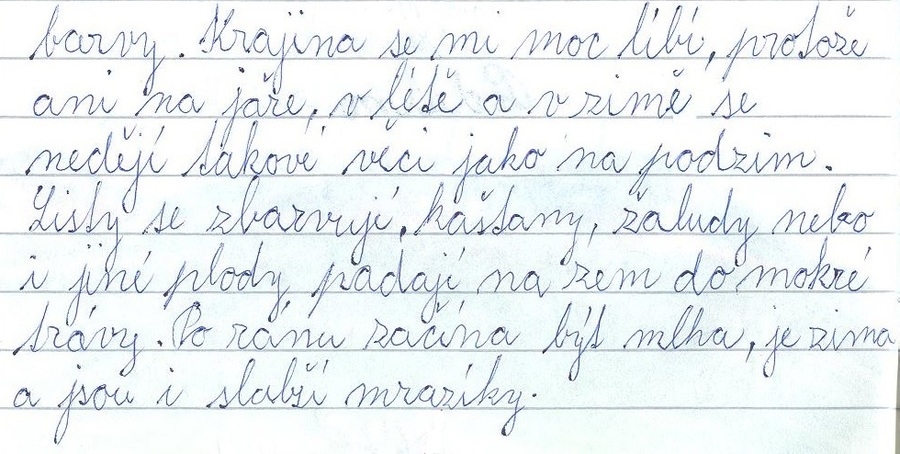 barvy. Krajina se mi moc líbí, protože
ani na jaře, v létě a v zimě se
nedějí takové věci jako na podzim.
Listy se zbarvují, kaštany, žaludy nebo
i jiné plody padají na zem do mokré
trávy. Po ránu začíná být mlha, je zima
a jsou i slabší mrazíky.